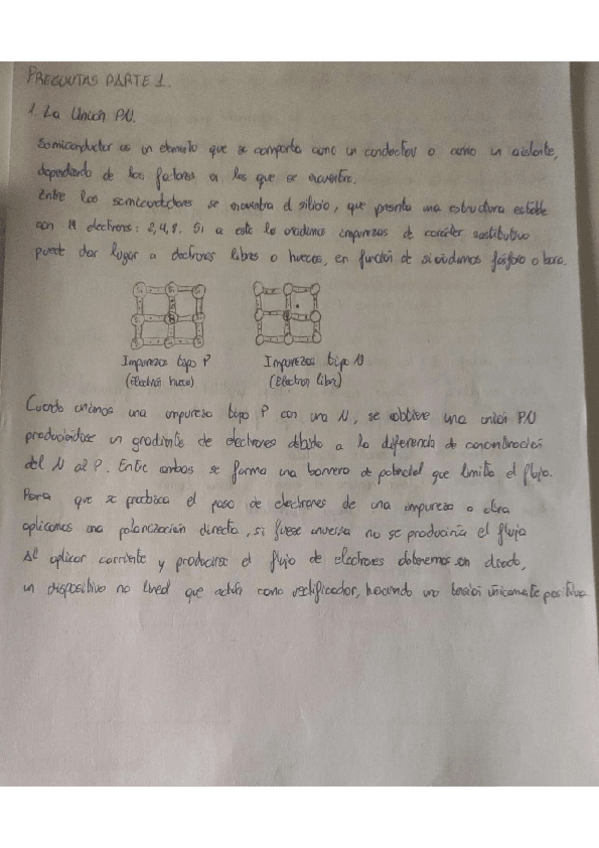 PREGUNTAS PARTE 1.
1. La Unión PN.
Semiconductor es un elemento que se comporta como un conductor o como un aislante,
dependiendo de los factores en los que se encuentre.
Entre los semiconductores se encuentra el silicio, que presenta una estructura estable
con 14 electrones: 2,4,8. Si a este le añadimos impurezas de carácter sustitutivo
puede dar lugar a electrones libres o huecos, en función de si añadimos fósforo o boro.
Impurezas tipo P Impurezas tipo N
(Electrón hueco) (Electrón libre)
Cuando unimos una impureza tipo P con una N, se obtiene una unión PN
produciéndose un gradiente de electrones debido a la diferencia de concentración
del N al P. Entre ambos se forma una barrera de potencial que limita el flujo.
Para que se produzca el paso de electrones de una impureza a otra
aplicamos una polarización directa, si fuese inversa no se produciría el flujo
Al aplicar corriente y producirse el flujo de electrones obtenemos un diodo,
un dispositivo no lineal que actúa como rectificador, haciendo una tensión únicamente positiva